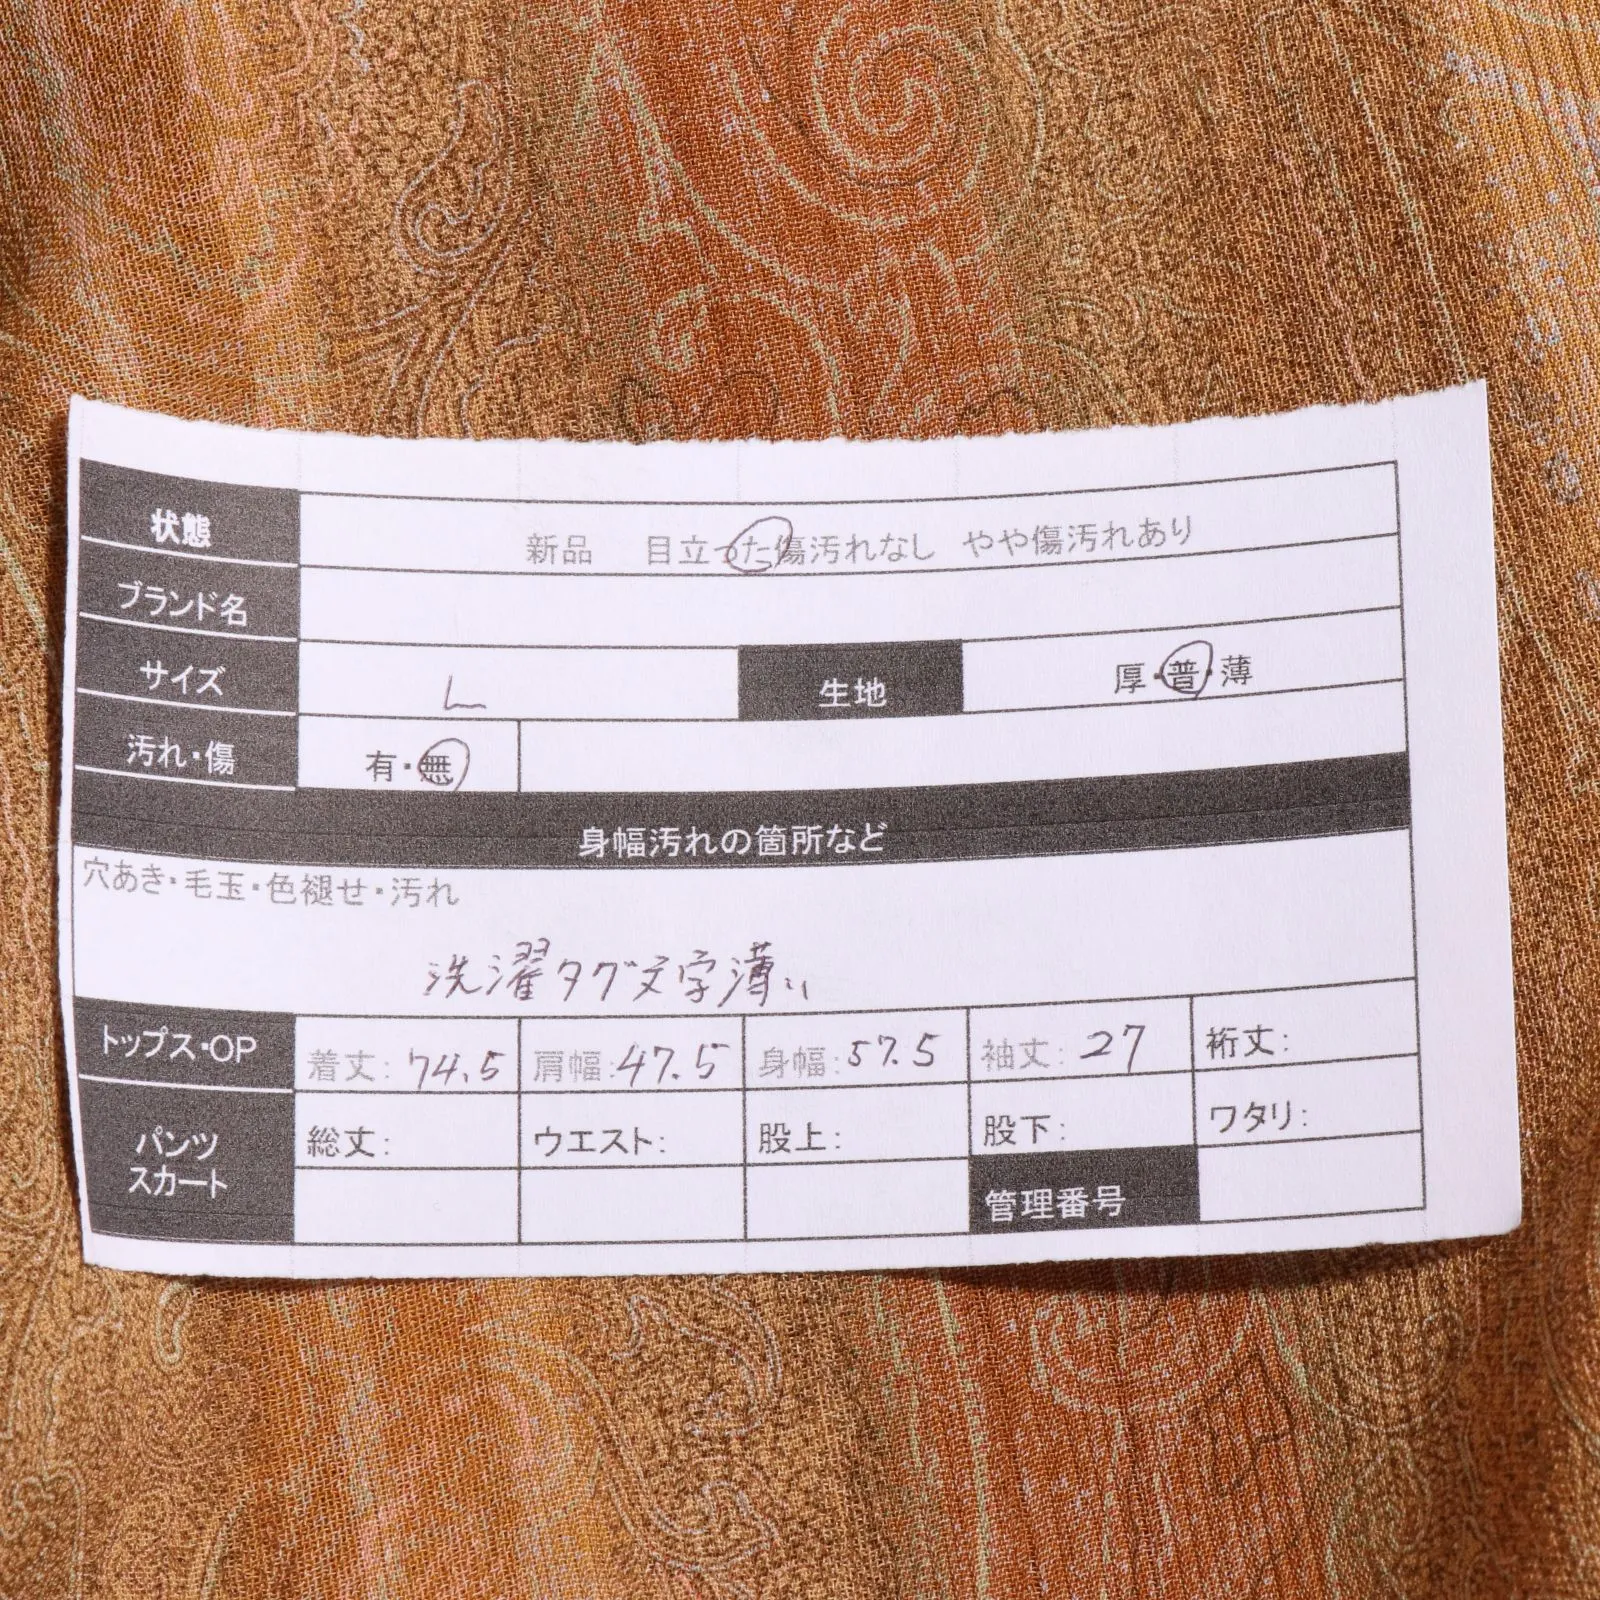 状態 新品 目立った傷汚れなし やや傷汚れあり
ブランド名
サイズ L 生地 厚・普・薄
汚れ・傷 有・無
身幅汚れの箇所など
穴あき・毛玉・色褪せ・汚れ
洗濯タグ文字薄い
トップス・OP 着丈: 74.5 肩幅: 47.5 身幅: 57.5 袖丈: 27 裄丈:
パンツ 総丈: ウエスト: 股上: 股下: ワタリ:
スカート 管理番号